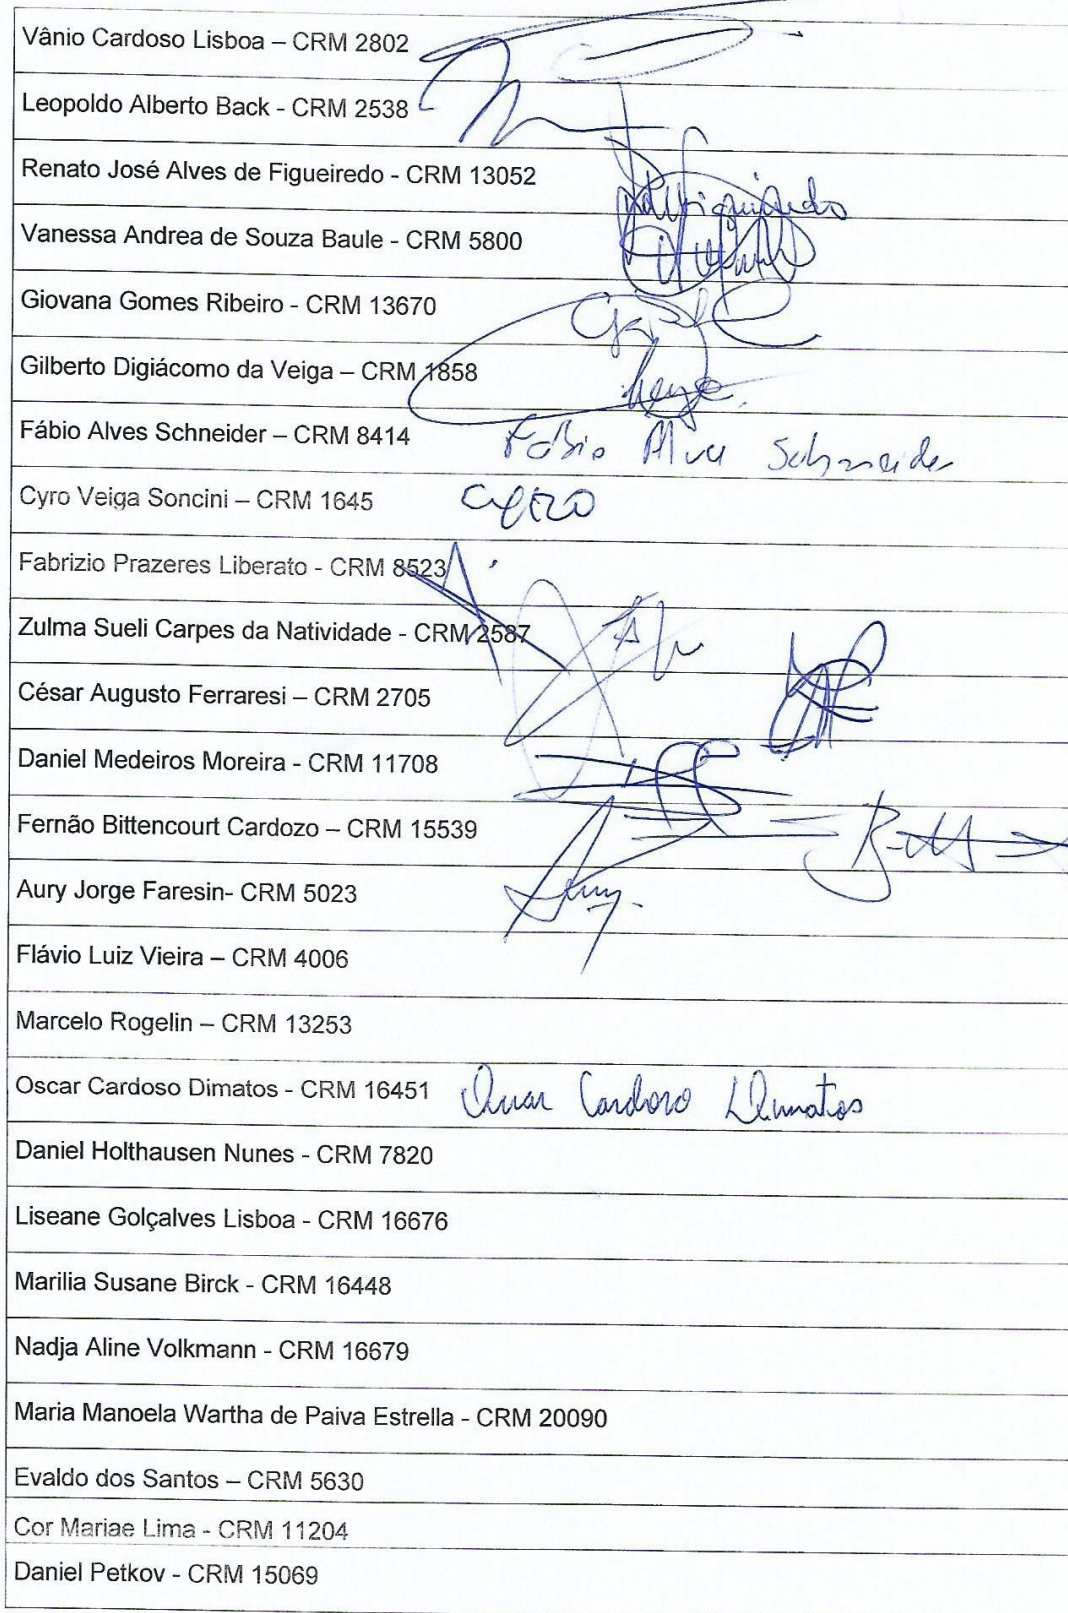 Vânio Cardoso Lisboa – CRM 2802
Leopoldo Alberto Back - CRM 2538
Renato José Alves de Figueiredo - CRM 13052
Vanessa Andrea de Souza Baule - CRM 5800
Giovana Gomes Ribeiro - CRM 13670
Gilberto Digiácomo da Veiga – CRM 1858
Fábio Alves Schneider – CRM 8414 Fábio Alves Schneider
Cyro Veiga Soncini – CRM 1645 Cyro
Fabrizio Prazeres Liberato - CRM 8523
Zulma Sueli Carpes da Natividade - CRM 2587
César Augusto Ferraresi – CRM 2705
Daniel Medeiros Moreira - CRM 11708
Fernão Bittencourt Cardozo – CRM 15539
Aury Jorge Faresin- CRM 5023
Flávio Luiz Vieira – CRM 4006
Marcelo Rogelin – CRM 13253
Oscar Cardoso Dimatos - CRM 16451 Oscar Cardoso Dimatos
Daniel Holthausen Nunes - CRM 7820
Liseane Golçalves Lisboa - CRM 16676
Marilia Susane Birck - CRM 16448
Nadja Aline Volkmann - CRM 16679
Maria Manoela Wartha de Paiva Estrella - CRM 20090
Evaldo dos Santos – CRM 5630
Cor Mariae Lima - CRM 11204
Daniel Petkov - CRM 15069